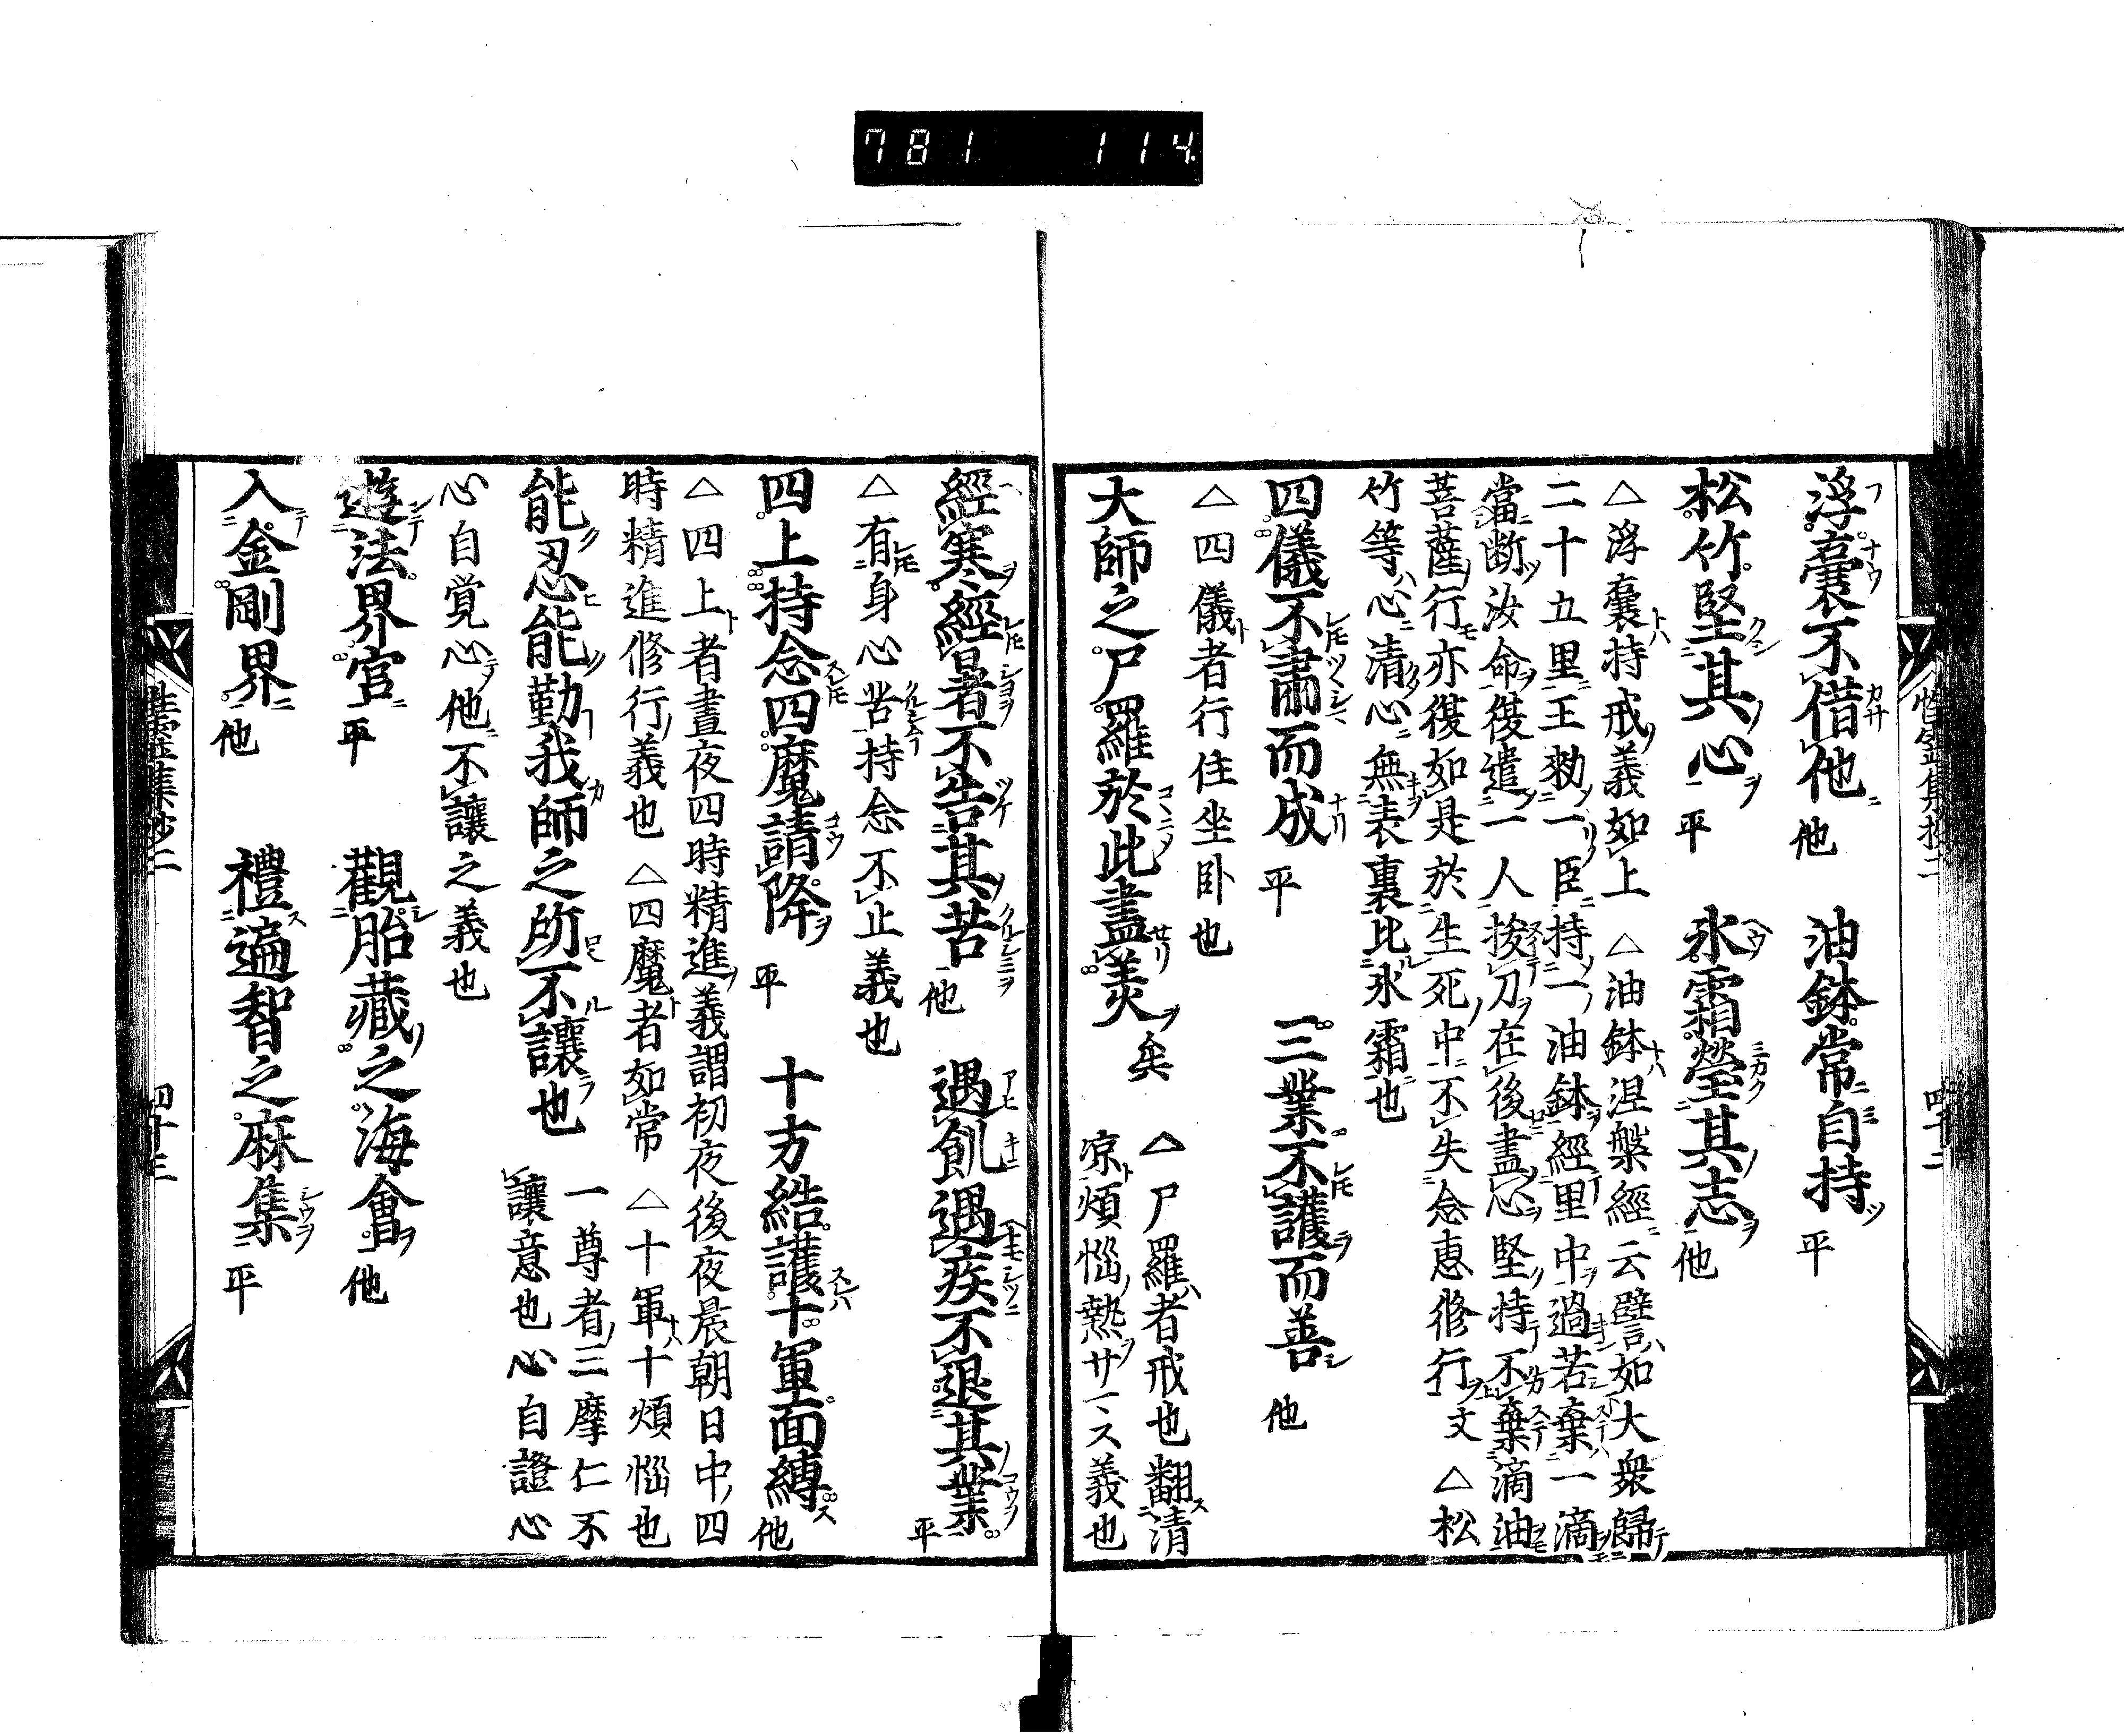 781 114
浮囊不借他 他 油鉢常自持 平
松竹堅其心 平 氷霜瑩其志 他
△浮囊持戒義如上 △油鉢涅槃經云譬如大衆歸
二十五里王勑一臣持一油鉢經里中過若棄一滴
當断汝命復遣一人拔刀在後盡心堅持不棄滴油
菩薩行亦復如是於生死中不失念恵修行文 △松
竹等心清心無表裏比氷霜也
四儀不肅而成 平 三業不護而善 他
△四儀者行住坐卧也
大師之尸羅於此盡美矣 △尸羅者戒也翻清
凉煩惱熱サマス義也
經寒經暑不告其苦 他 遇飢遇疾不退其業 平
△有身心苦持念不止義也
四上持念四魔請降 平 十方結護十軍面縛 他
△四上者晝夜四時精進義謂初夜後夜晨朝日中四
時精進修行義也 △四魔者如常 △十軍十煩惱也
能忍能勤我師之所不讓也 一尊者三摩仁不
讓意也心自證心
心自覚心他不讓之義也
遊法界宮 平 觀胎藏之海會 他
入金剛界 他 禮遍智之麻集 平
四十二
四十三